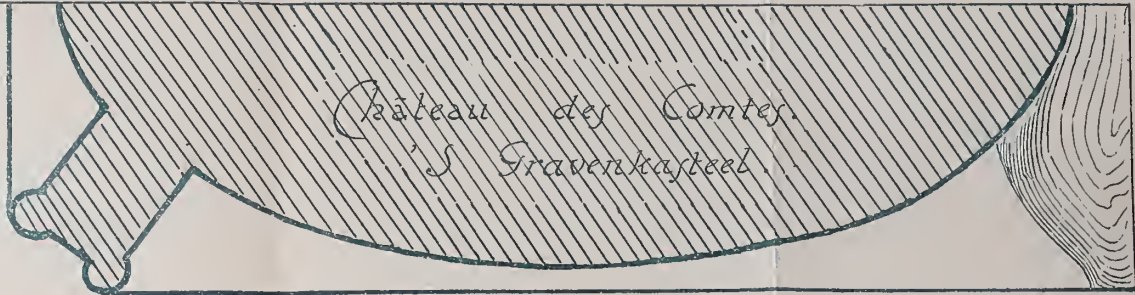 Château des Comtes.
'S Gravenkasteel.